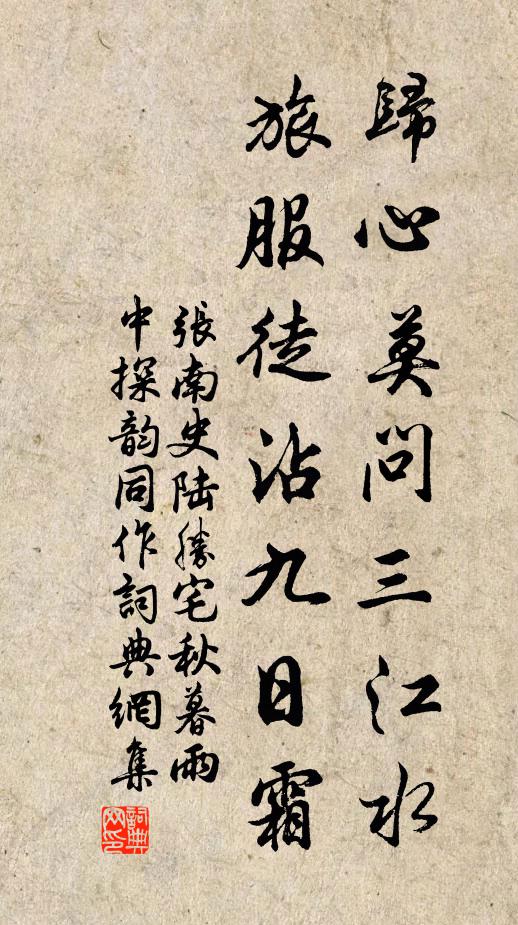 歸心莫問三江水
旅服徒沾九日霜
張南史陸勝宅秋暮雨
中探韵同作詞典網集
詞典
网印